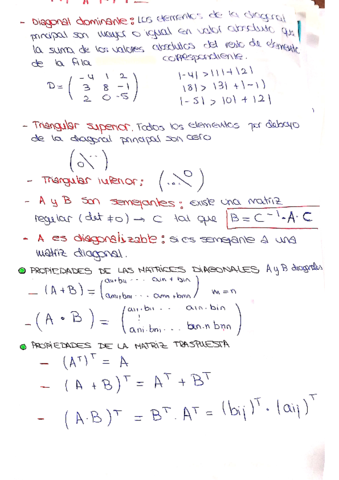 - Diagonal dominante: Los elementos de la diagonal
principal son mayor o igual en valor absoluto que
la suma de los valores absolutos del resto de elementos
de la fila correspondiente.
D = ( -4 1 2 |-4| > |1| + |2|
3 8 -1 |8| > |3| + |-1|
2 0 -5 ) |-5| > |0| + |2|
- Triangular superior. Todos los elementos por debajo
de la diagonal principal son cero
( \ ··
0 \ )
- Triangular inferior: ( \ 0
·· \ )
- A y B son semejantes: existe una matriz
regular (det ≠ 0) → C tal que B = C⁻¹·A·C
- A es diagonalizable: si es semejante a una
matriz diagonal.
PROPIEDADES DE LAS MATRICES DIAGONALES A y B diagonales
- (A+B) = ( a11+b11 ··· a1n+b1n
am1+bm1 ··· amn+bmn ) m = n
- (A • B) = ( a11·b11 ··· a1n·b1n
am1·bm1 ··· bnn·bnn )
PROPIEDADES DE LA MATRIZ TRASPUESTA
- (Aᵀ)ᵀ = A
- (A + B)ᵀ = Aᵀ + Bᵀ
- (A·B)ᵀ = Bᵀ · Aᵀ = (bij)ᵀ · (aij)ᵀ